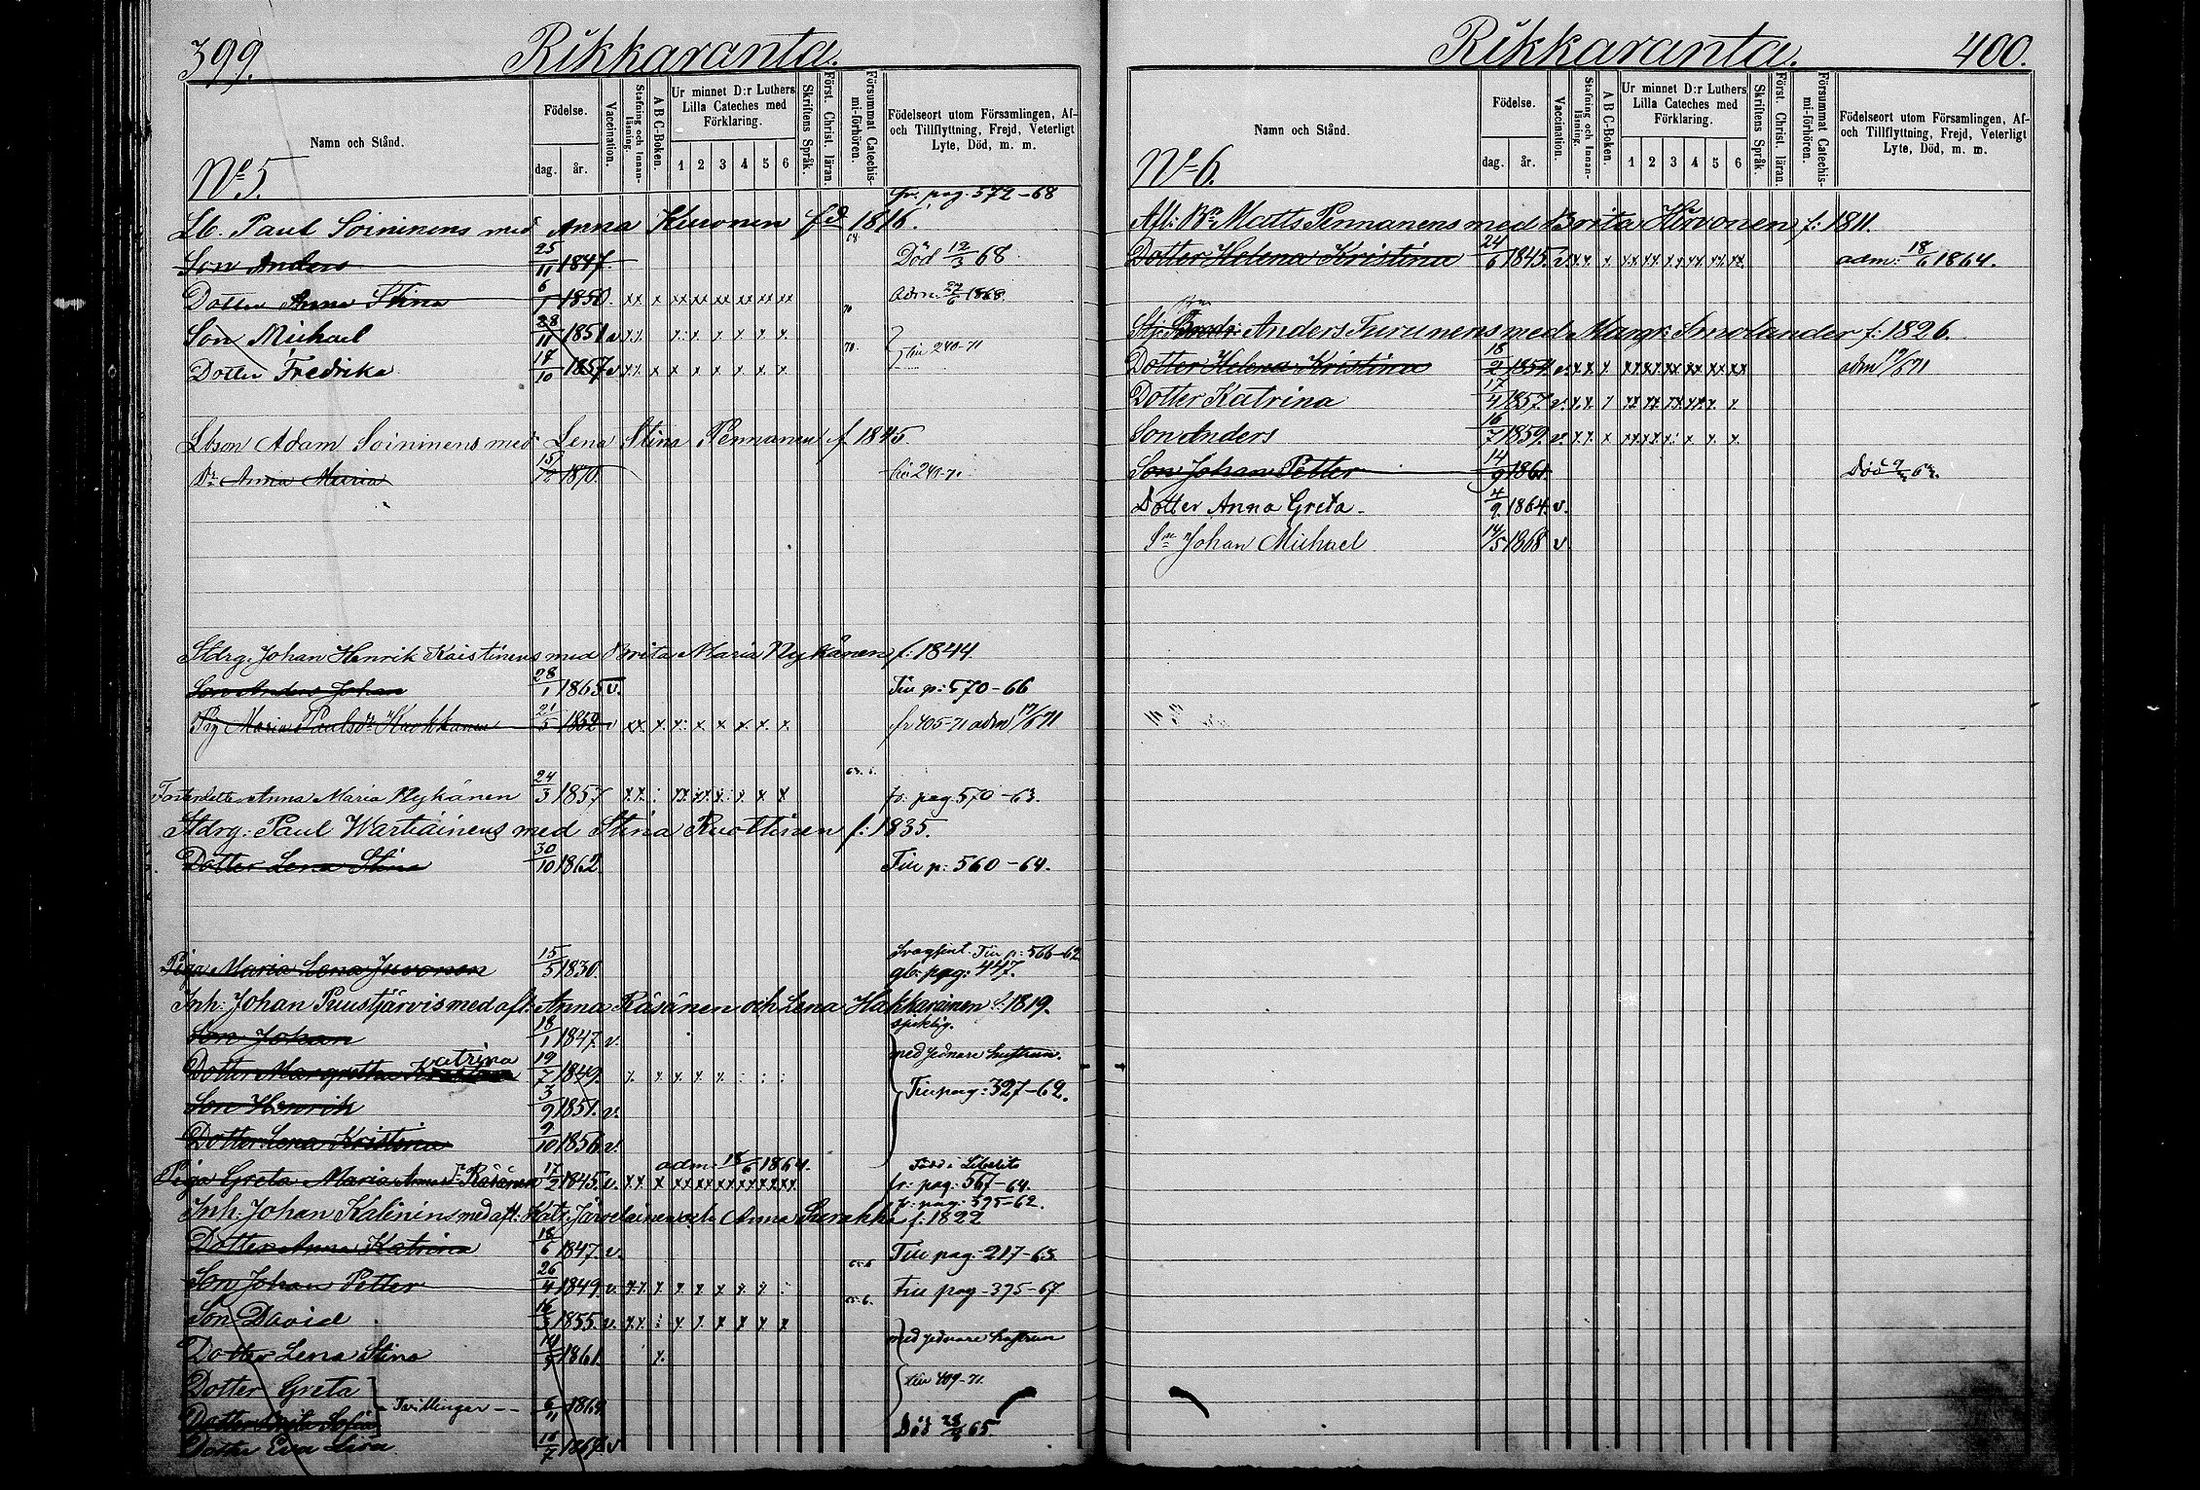 399. Rikkaranta.
Namn och Stånd.
Födelse.
dag. år.
Vaccination.
Stafning och Innan-läsning.
A B C-Boken.
Ur minnet D:r Luthers Lilla Cateches med Förklaring.
1 2 3 4 5 6
Skriftens Språk.
Först. Christ. läran.
Försummat Catechis-mi-förhören.
Födelseort utom Församlingen, Af- och Tillflyttning, Frejd, Veterligt Lyte, Död, m. m.
No 5.
fr. pag. 572-68
Lb. Paul Soininens med Anna Kuronen fd 1816.
Son Anders 25/11 1847. Död 12/3 68
Dotter Anna Stina 6/1 1850. xx x xx xx xx xx xx xx adm 1868.
Son Michael 28/11 1851 v
Dotter Fredrika 17/10 1857 v x x x x x x x till 240-71
Lbson Adam Soininens med Lena Stina Pennanen f. 1845
Dr Anna Maria 1870 240-71
Stdrg. Johan Henrik Kaistinens med Brita Maria Nykänen f: 1844
Son Anders Johan 28/1 1865 v. Till p: 570-66
Pig Maria Paulsdr 21/5 1852 v xx x. x. x x x x. x. fr 405-71 adm 71
Fosterdotter Anna Maria Nykänen 24/3 1857 fr. pag. 570-63.
Stdrg: Paul Wartiainens med Stina Ruottinen f: 1835.
Dotter Lena Stina 30/10 1862 Till p: 560-64.
Piga Maria Lena Juvonen 15/5 1830 Till p: 566-62
pag: 447.
Inh: Johan Puustjärvis med afl. Anna Räsänen och Lena Hakkarainen f. 1819.
Son Johan 18/1 1847. v.
Dotter Margretha Katrina 19/7 1849. med
Son Henrik 3/9 1851. v. Till pag: 327-62.
Dotter Lena Kristina 9/10 1856 v.
adm: 18/6 1864. Född i Libelits
Piga Greta Maria Räsänen 17/2 1845. v. xx x xx xx xx xx xx xx fr: pag: 567-64.
fr: pag: 395-62.
Inh: Johan Kalinins med afl: Katr. Järvelainen och Anna Surakka f: 1822
Dotter Anna Katrina 18/6 1847. v. Till pag: 217-65
Son Johan Petter 26/4 1849 v. Till pag-395-67
Son David 16/3 1855. v.
Dotter Lena Stina 1861 x. med
Dotter Greta till 409-71
Tvillingar 6/11 1864
Dotter Brita Sofia Död 65
Dotter Eva Lisa 15/7 1867. v
Rikkaranta. 400.
Namn och Stånd.
Födelse.
dag. år.
Vaccination.
Stafning och Innan-läsning.
A B C-Boken.
Ur minnet D:r Luthers Lilla Cateches med Förklaring.
1 2 3 4 5 6
Skriftens Språk.
Först. Christ. läran.
Försummat Catechis-mi-förhören.
Födelseort utom Församlingen, Af- och Tillflyttning, Frejd, Veterligt Lyte, Död, m. m.
No 6.
Afl: Bn Matts Pennanens med Brita Hirvonen f: 1811.
Dotter Helena Kristina 24/6 1845. v. xx x xx xx xx xx xx xx adm: 18/6 1864.
Anders Turunens med Margr: Smolander f: 1826.
Dotter Helena Kristina 18/2 1854 v. xx x xx xx xx xx xx xx adm 71
Dotter Katrina 17/4 1857. v.
Son Anders 16/7 1859. v.
Son Johan Petter 14/9 1861 Död
Dotter Anna Greta 4/9 1864. v.
Sn Johan Michael 14/5 1868 v